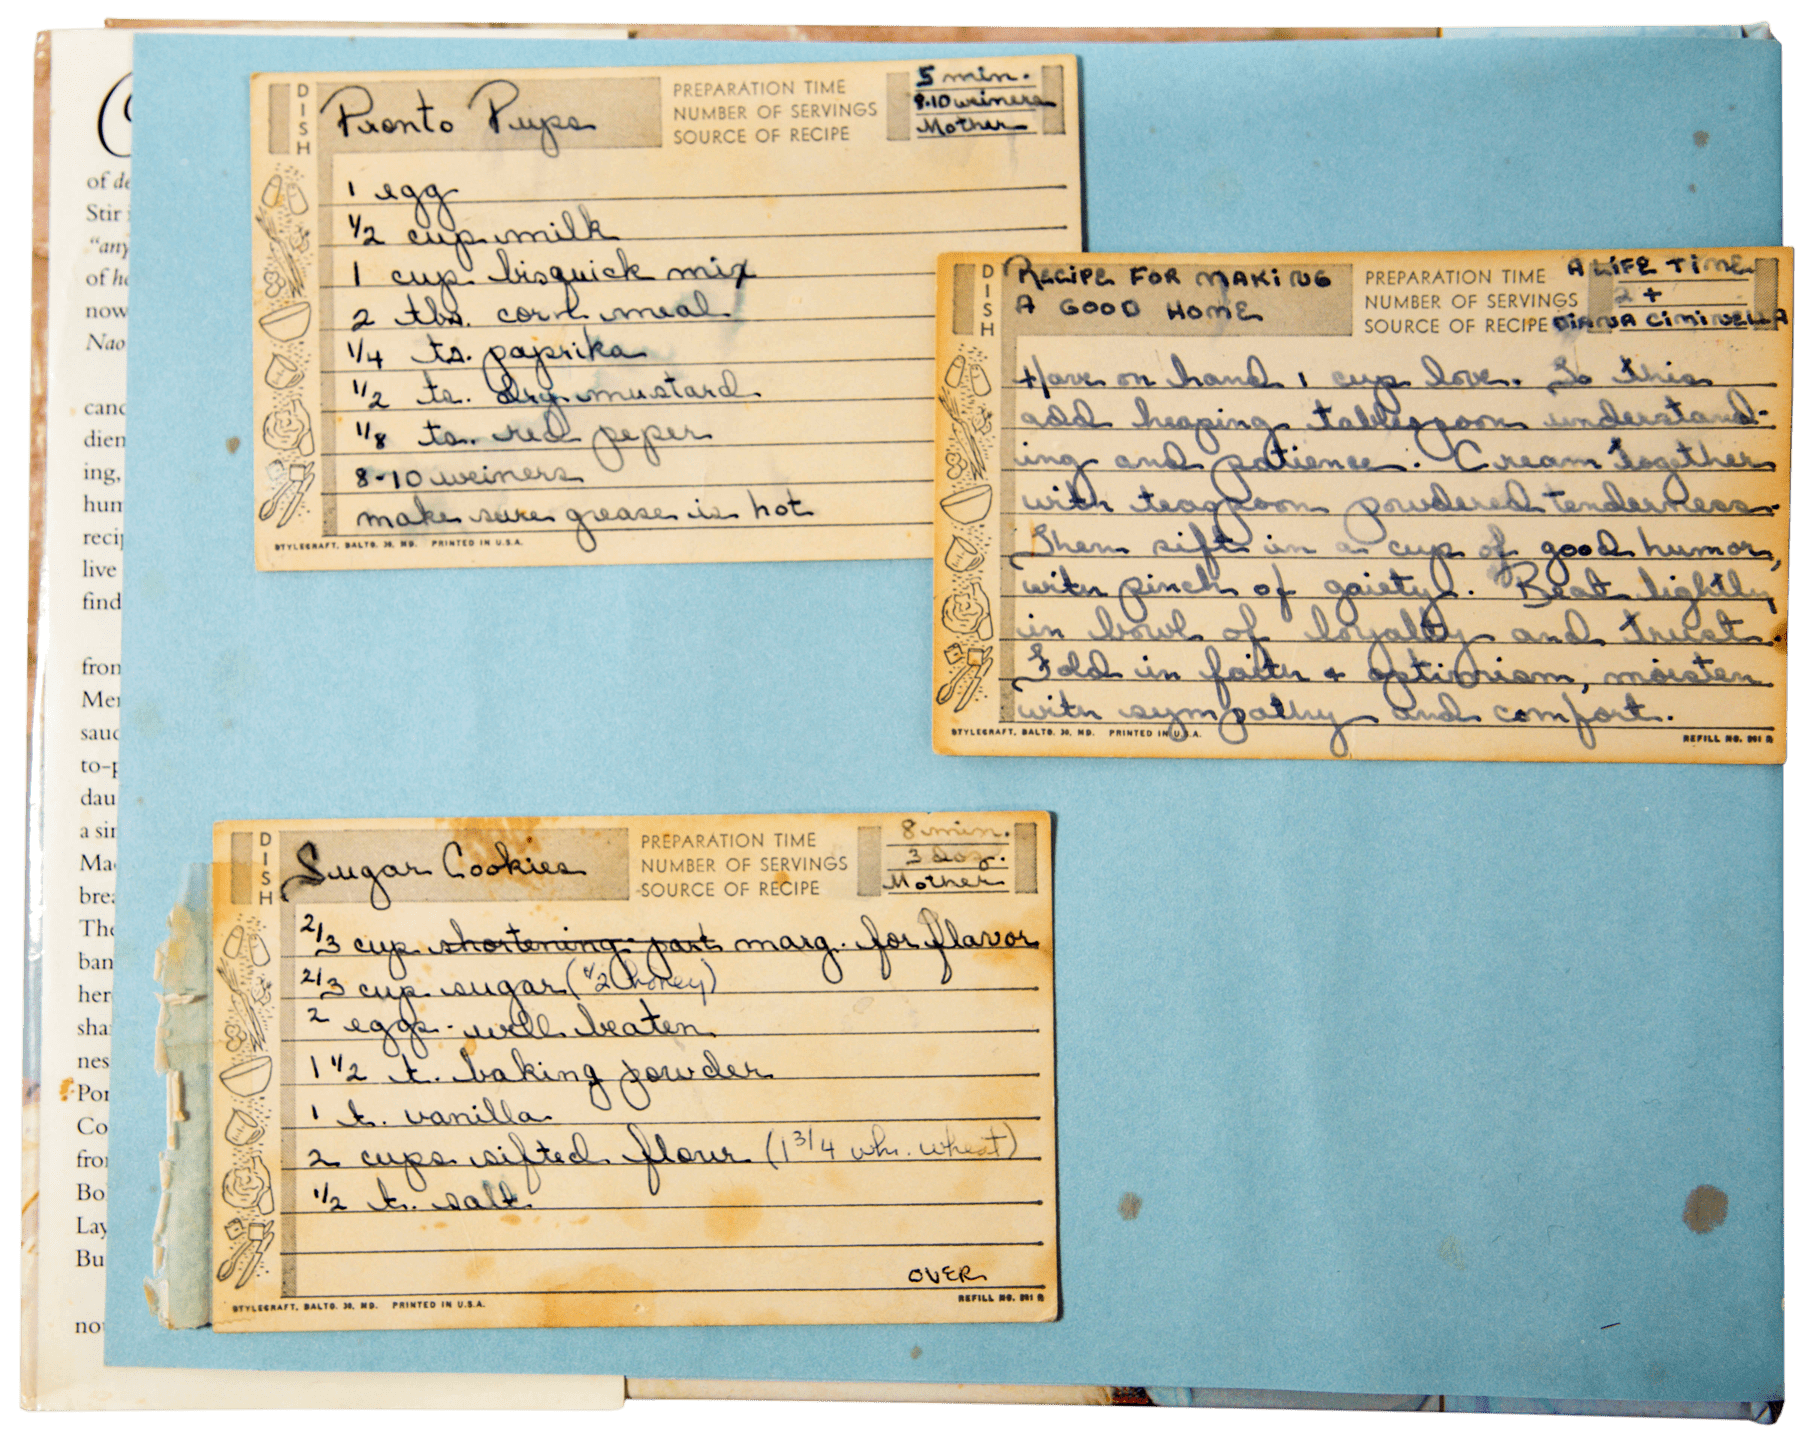 of de
Stir
"any
of he
now
Nao
cand
dien
ing,
hun
recij
live
find
from
Mer
sauc
to-p
dau
a sir
Ma
brea
The
ban
her
sha
nes
Por
Co
fro
Bo
Lay
Bu
no
DISH
Pronto Pups
PREPARATION TIME 5 min.
NUMBER OF SERVINGS 8-10 weiners
SOURCE OF RECIPE Mother
1 egg
1/2 cup milk
1 cup bisquick mix
2 tbs. corn meal
1/4 ts. paprika
1/2 ts. dry mustard
1/8 ts. red peper
8-10 weiners
make sure grease is hot
STYLECRAFT, BALTO. 30, MD. PRINTED IN U.S.A.
DISH
RECIPE FOR MAKING
A GOOD HOME
PREPARATION TIME A LIFE TIME
NUMBER OF SERVINGS 2 +
SOURCE OF RECIPE DIANA CIMINELLA
Have on hand 1 cup love. To this
add heaping tablespoon understand-
ing and patience. Cream together
with teaspoon powdered tenderness.
Then sift in a cup of good humor,
with pinch of gaiety. Beat lightly
in bowl of loyalty and trust.
Fold in faith + optimism, moisten
with sympathy and comfort.
STYLECRAFT, BALTO. 30, MD. PRINTED IN U.S.A.
REFILL NO. 861 R
DISH
Sugar Cookies
PREPARATION TIME 8 min.
NUMBER OF SERVINGS 3 doz.
SOURCE OF RECIPE Mother
2/3 cup shortening part marg. for flavor
2/3 cup sugar (1/2 honey)
2 eggs - well beaten
1 1/2 t. baking powder
1 t. vanilla
2 cups sifted flour (1 3/4 wh. wheat)
1/2 t. salt
OVER
STYLECRAFT, BALTO. 30, MD. PRINTED IN U.S.A.
REFILL NO. 861 R